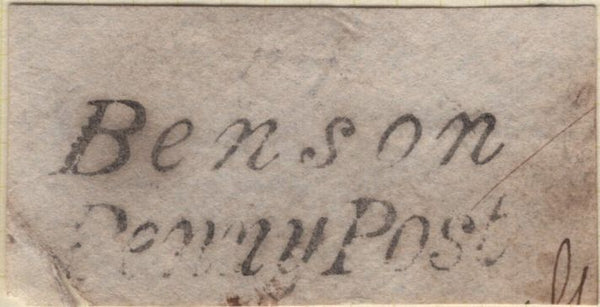 Benson
Penny Post